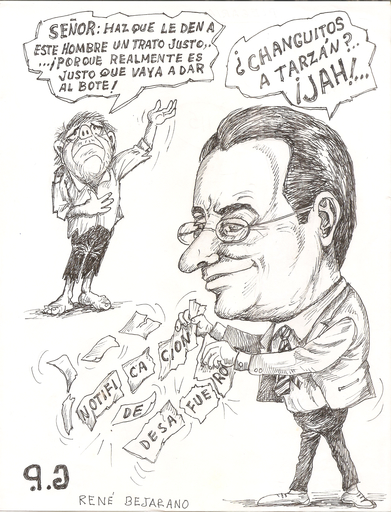 SEÑOR: HAZ QUE LE DEN A
ESTE HOMBRE UN TRATO JUSTO...
...¡PORQUE REALMENTE ES
JUSTO QUE VAYA A DAR
AL BOTE!
¿CHANGUITOS
A TARZÁN?..
¡JAH!...
NOTIFICACION
DE
DESAFUERO
G.P
RENÉ BEJARANO